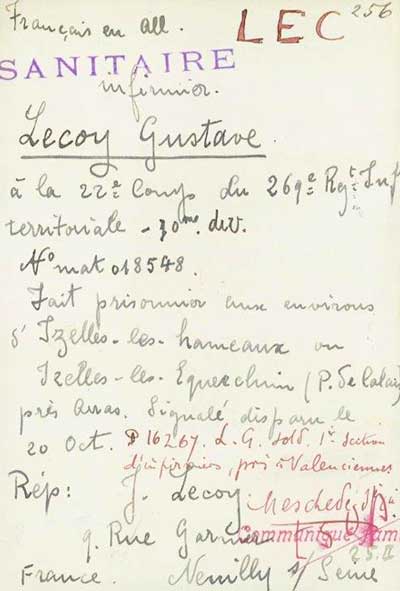 Français en All. LEC 256
SANITAIRE
infirmier.
Lecoy Gustave.
à la 22e Comp du 269e Regt Inf
territoriale - 70me div.
No mat 018548.
Fait prisonnier aux environs
d'Izelles-les-hameaux ou
Izelles-les-Equerchin (P. de Calais)
près Arras. Signalé disparu le
20 Oct. P 16267. L.G. sold. 1e section
d'infirmiers, pris à Valenciennes
Rép: J. Lecoy Meschede
9. Rue Garnier Communiqué fam
France. Neuilly s/ Seine